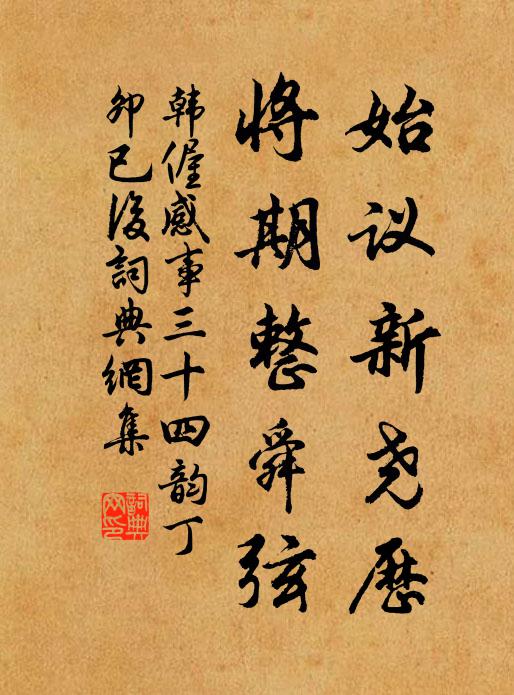 始议新尧历
将期整舜弦
韩偓感事三十四韵丁
卯已后詞典網集
詞典网印